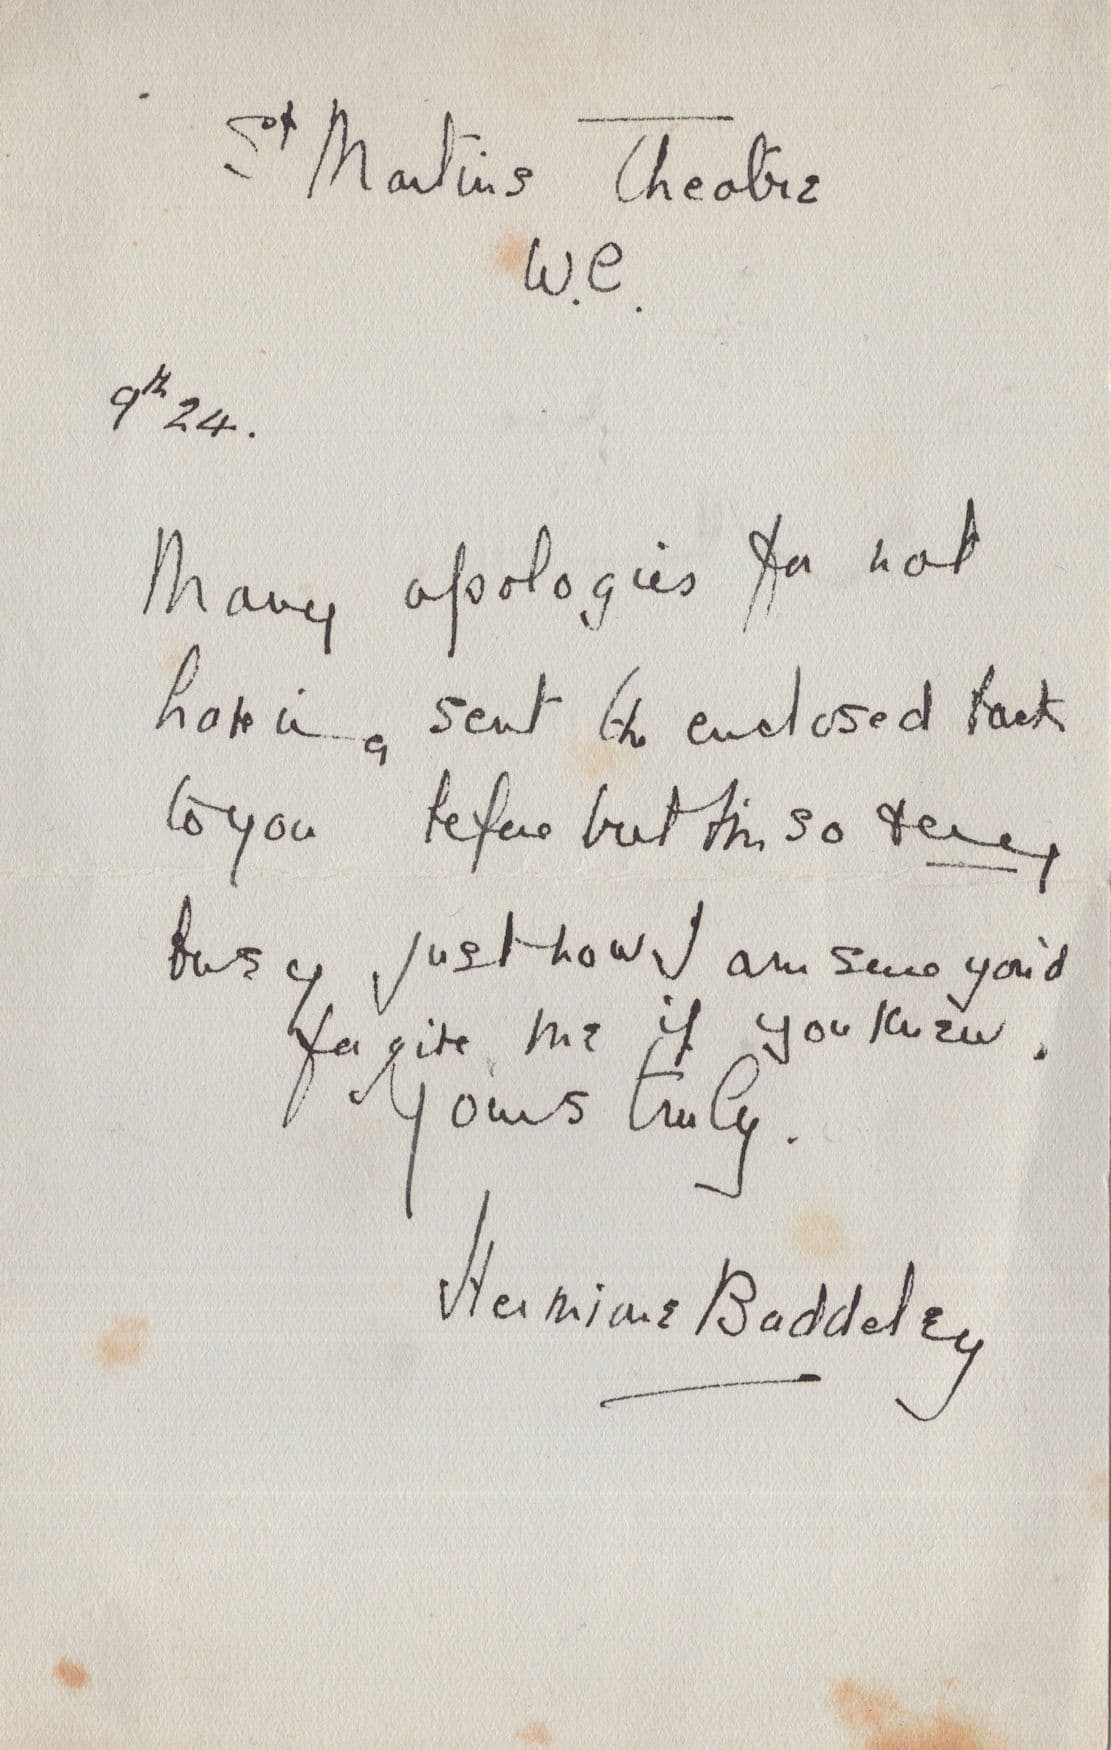 St Martins Theatre
W.C.
9th 24.
Many apologies for not
having sent the enclosed back
to you before but I'm so very
busy just now I am sure you'd
forgive me if you knew.
Yours truly.
Hermione Baddeley